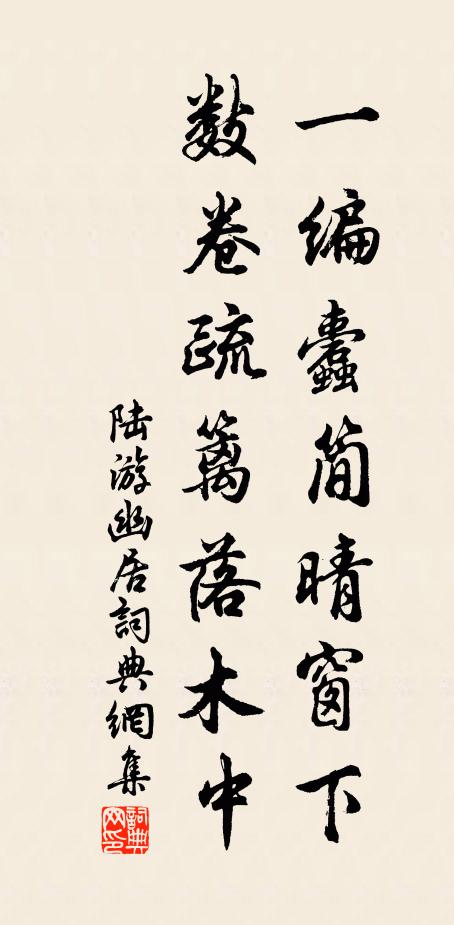 一編蠹简晴窗下
数卷疏篱落木中
陆游幽居詞典網集
詞典网印